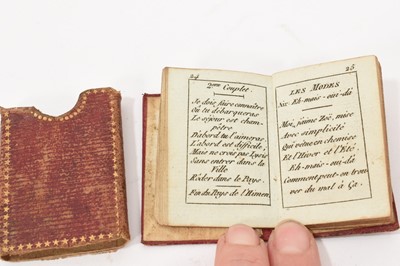 24
2me Couplet.
Je dois faire connaître
Où tu débarqueras
Le séjour est cham-
pêtre
D'abord tu l'aimeras
L'abord est difficile,
Mais ne crois pas
Sans entrer dans la
Ville
Rôder dans le Pays.
Fin du Pays de l'Himen
25
LES MODES
Air. Eh-mais-oui-dà
Moi, j'aime Zoë, mise
Avec simplicité
Qui vêtue en chemise
Et l'Hiver et l'Eté.
Eh-mais-oui-dà
Comment peut-on trou-
ver du mal à Ça.